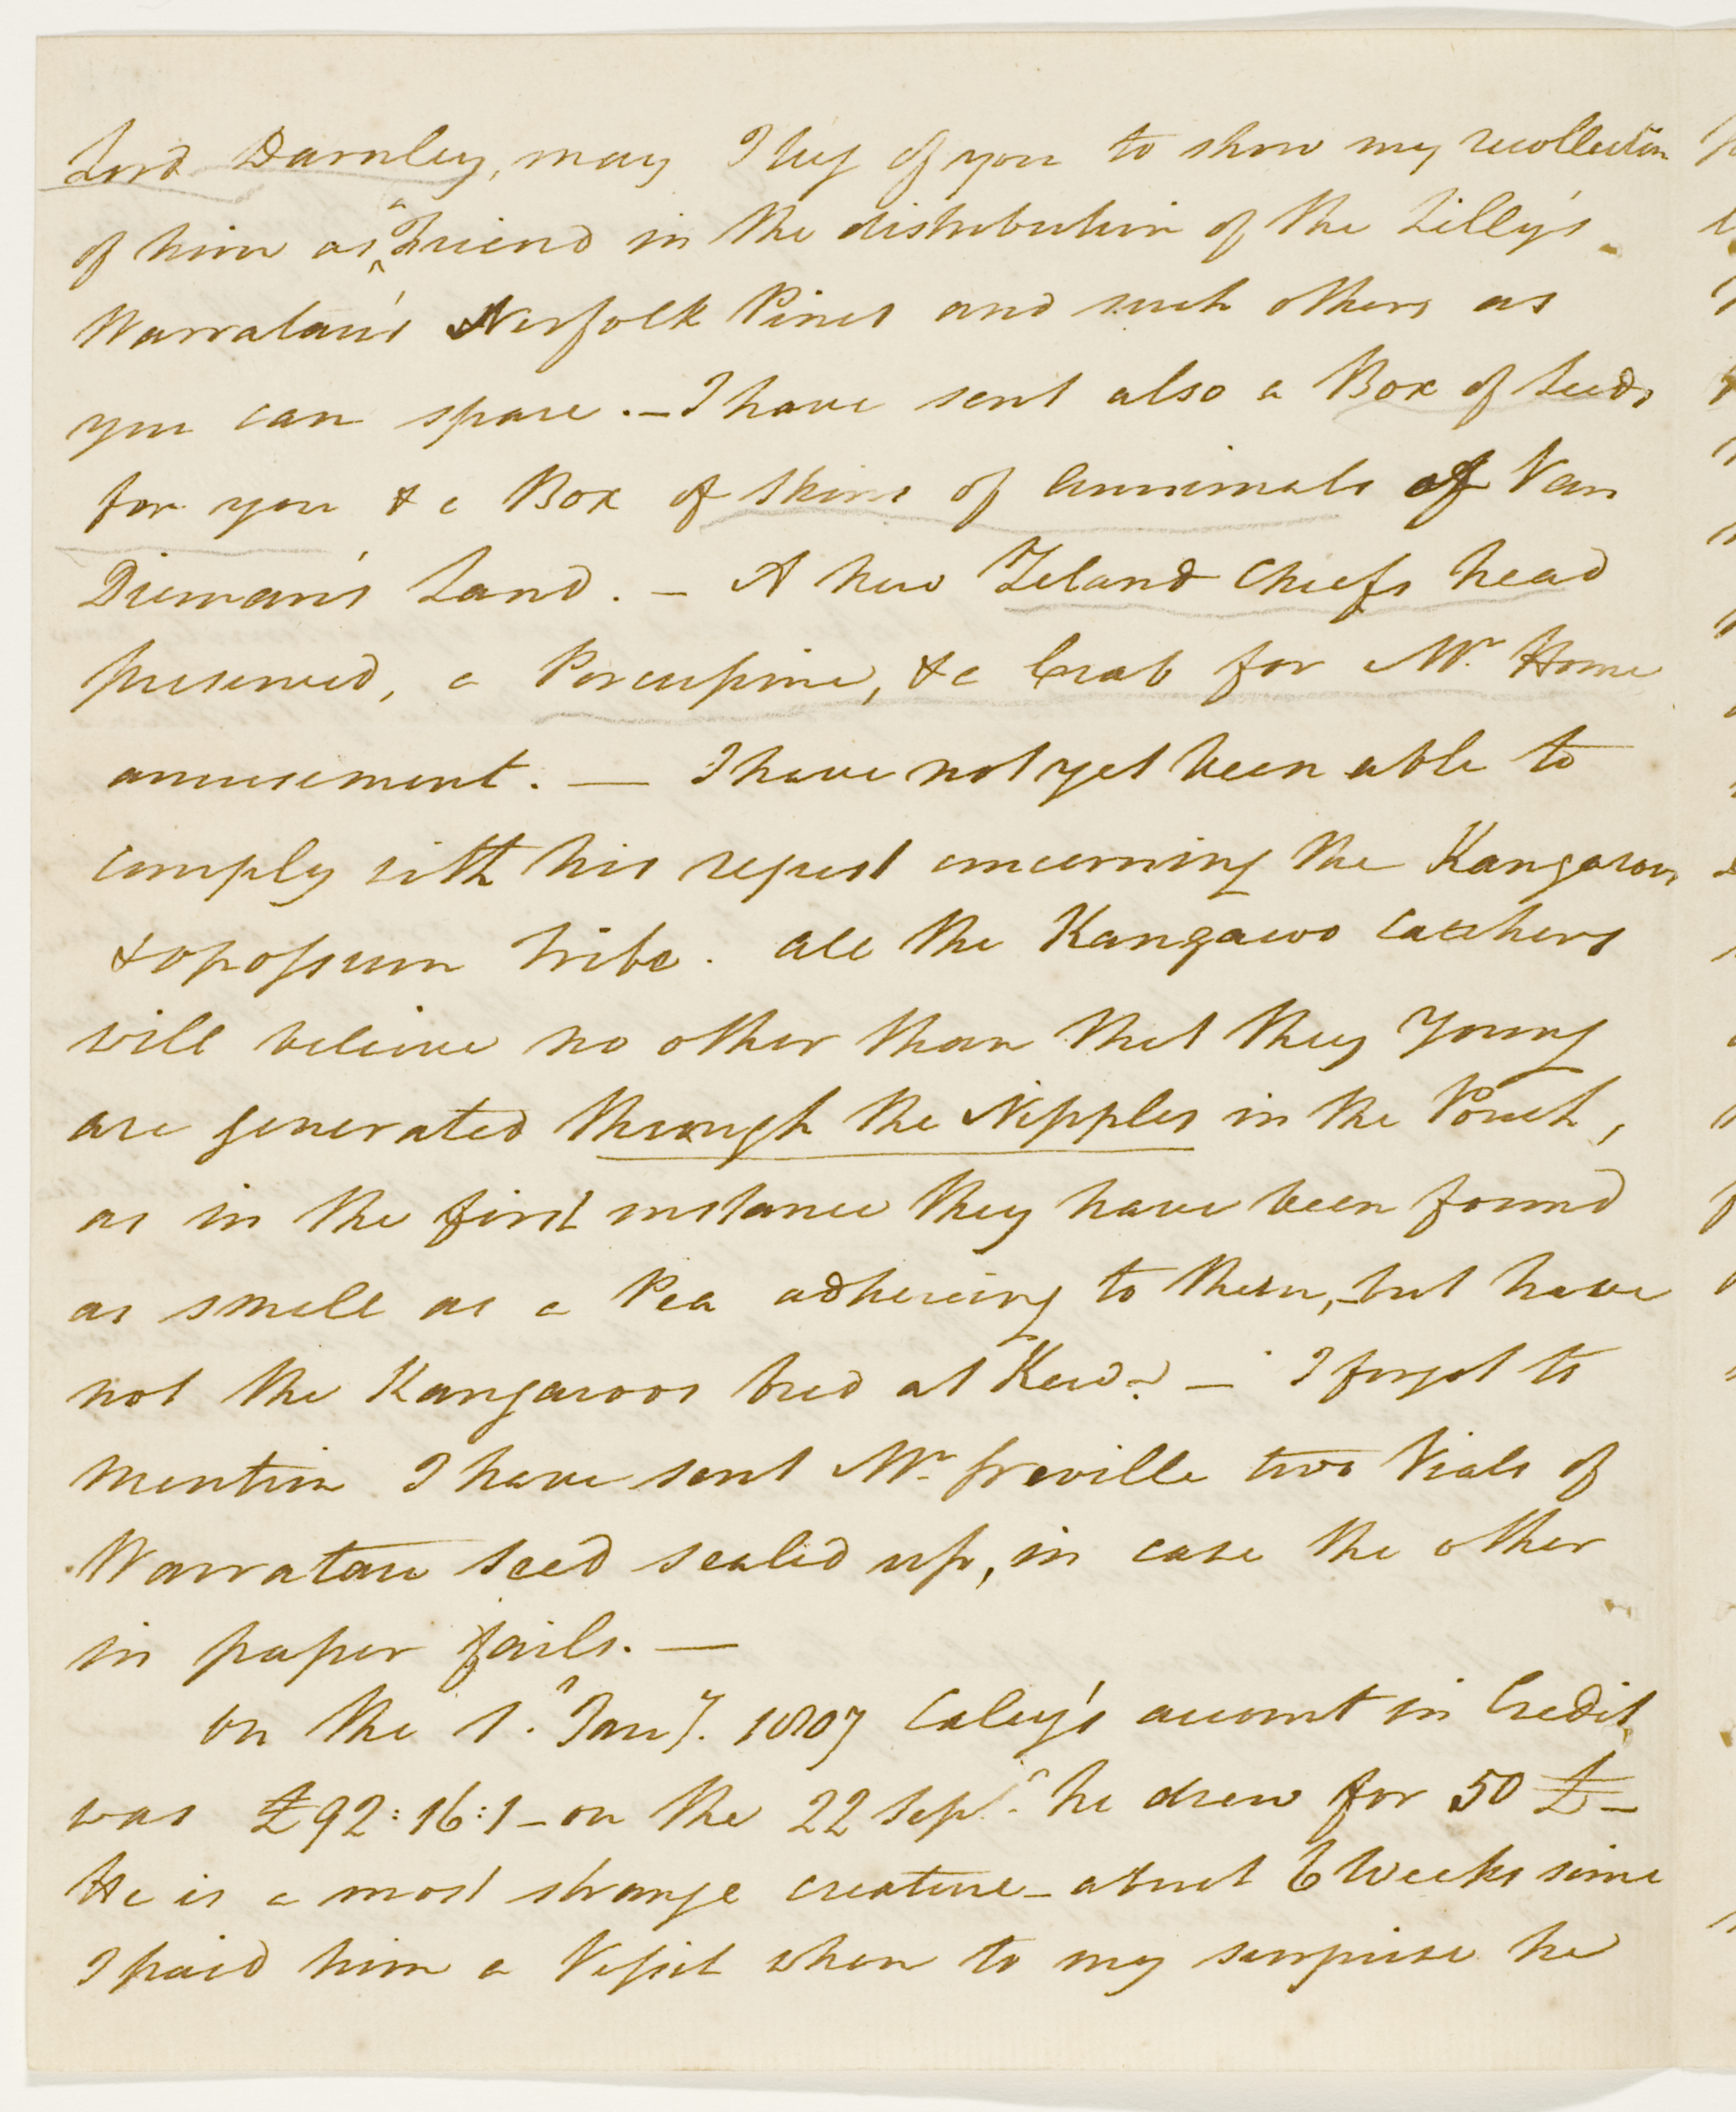 Lord Darnley, may I beg of you to show my recollection
of him as a Friend in the distribution of the Lilly's
Warratau's Norfolk Pines and such others as
you can spare. – I have sent also a Box of Seeds
for you & a Box of Skins of Annimals of Van
Dieman's Land. – A New Zeland Chiefs head
preserved, a Porcupine, & a Crab for Mr. Home
amusement. — I have not yet been able to
comply with his request concerning the Kangaroo
& opossum tribe. All the Kangaroo catchers
will believe no other than that they Young
are generated through the Nipples in the Pouch,
as in the first instance they have been found
as small as a Pea adhereing to them, – but have
not the Kangaroos bred at Kew? – I forgot to
mention I have sent Mr. Greville two Vials of
Warratau seed sealed up, in case the other
in paper fails. —
On the 1. Jany. 1807 Caley's account in Credit
was £92:16:1 – on the 22 Sepr. he drew for 50 £ –
He is a most strange creature – about 6 Weeks since
I paid him a Vissit when to my surprise he